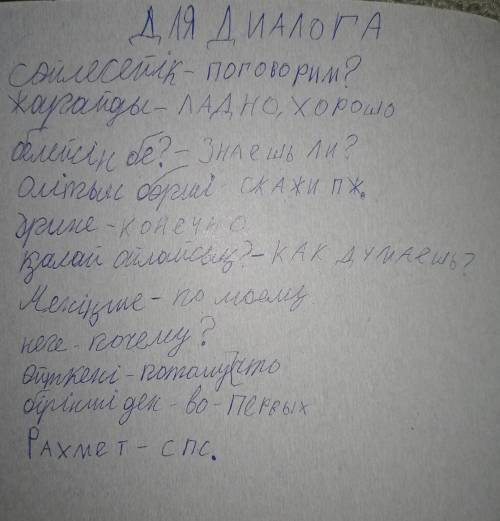 ДЛЯ ДИАЛОГА
сөйлесейік - поговорим?
жарайды - ЛАДНО, ХОРОШО
білесің бе? - Знаешь ли?
СКАЖИ ПЖ.
әрине - конечно
қалай ойлайсың? - КАК ДУМАЕШЬ?
Меніңше - по моему
неге - почему?
өйткені - потому что
біріншіден - во-первых
Рахмет - спс.